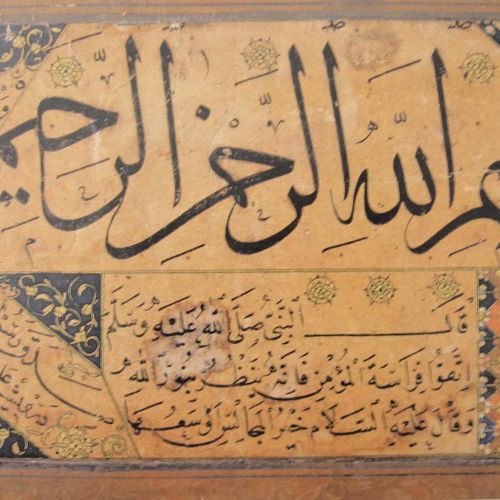 بسم الله الرحمن الرحيم
قال النبي صلى الله عليه وسلم
اتقوا فراسة المؤمن فانه ينظر بنور الله
وقال عليه السلام خير المجالس اوسعها